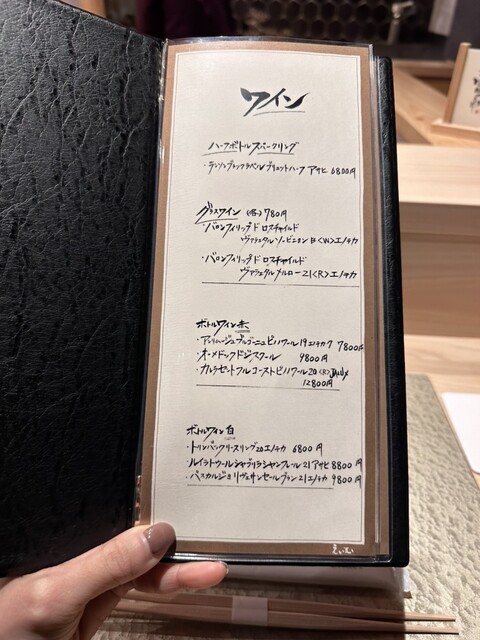 ワイン
ハーフボトルスパークリング
・ランソンブラックラベルブリュットハーフ アサヒ 6800円
グラスワイン (各)780円
・バロンフィリップ ド ロスチャイルド
ヴァラエタル ソービニヨン B <W>エノテカ
・バロンフィリップ ド ロスチャイルド
ヴァラエタル メルロー 21 <R>エノテカ
ボトルワイン 赤
ブルゴーニュ ピノノワール 19 エノテカ 7800円
・オーメドック ド ジスクール 9800円
・カレラ セントラルコースト ピノノワール 20 <R>
12800円
ボトルワイン 白
・トリンバック リースリング 20 エノテカ 6800円
21 アサヒ 8800円
・パスカルジョリヴェ サンセールブラン 21 エノテカ 9800円